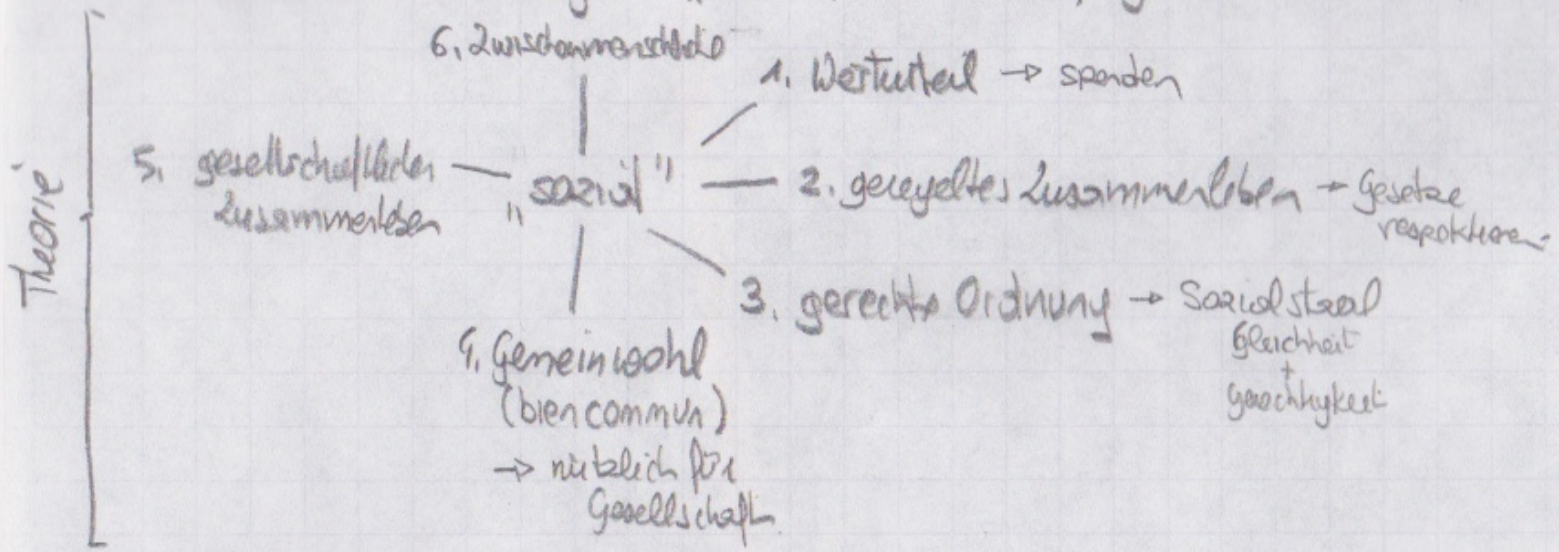 Theorie
6. Zwischenmenschliche
1. Werturteil → spenden
5. gesellschaftlichen
Zusammenleben
"sozial"
2. geregeltes Zusammenleben → Gesetze
respektieren
3. gerechte Ordnung → Sozialstaat
Gleichheit
+
Gerechtigkeit
4. Gemeinwohl
(bien commun)
→ nützlich für
Gesellschaft